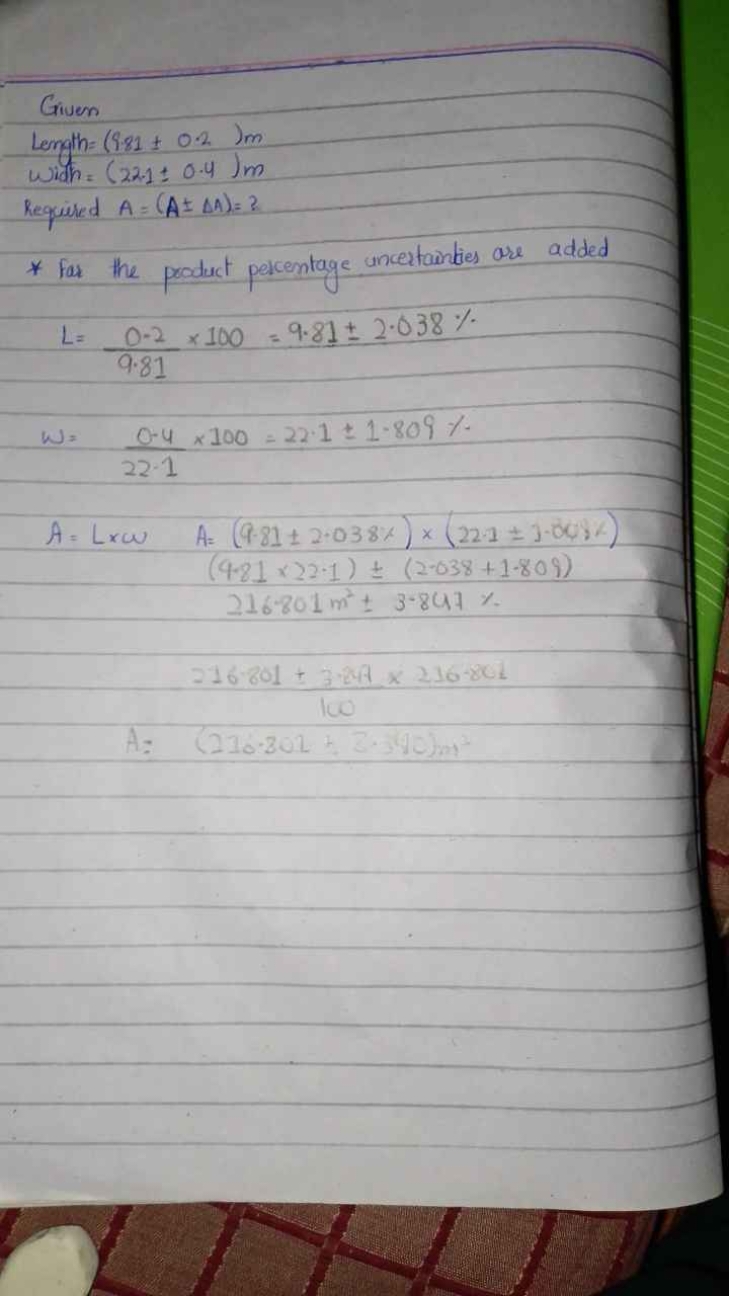 Given
Length= (9.81 ± 0.2 )m
Widh = (22.1 ± 0.4 )m
Required A = (A ± ΔA)= ?
* For the product percentage uncertainties are added
L= 0.2 × 100 = 9.81 ± 2.038 %
9.81
W= 0.4 × 100 = 22.1 ± 1.809 %
22.1
A = L×W A= (9.81 ± 2.038%) × (22.1 ± 1.809%)
(9.81 × 22.1) ± (2.038 + 1.809)
216.801 m² ± 3.847 %
216.801 ± 3.847 × 216.801
100
A= (216.801 ± 8.340)m²